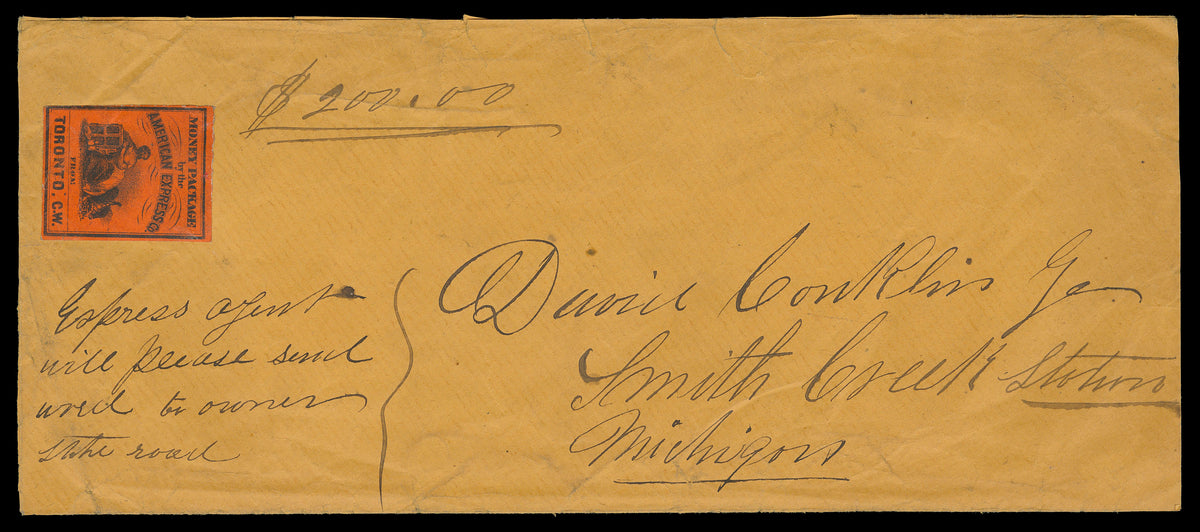 $200.00
MONEY PACKAGE
by the
AMERICAN EXPRESS Co.
FROM
TORONTO, C.W.
David Conklin
Smith Creek Station
Michigan
Express agent
will please send
word to owner
State road